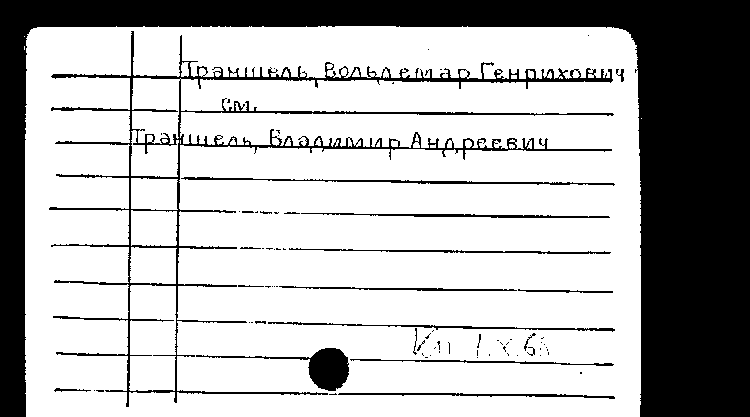 Траншель, Вольдемар Генрихович
см.
Траншель, Владимир Андреевич